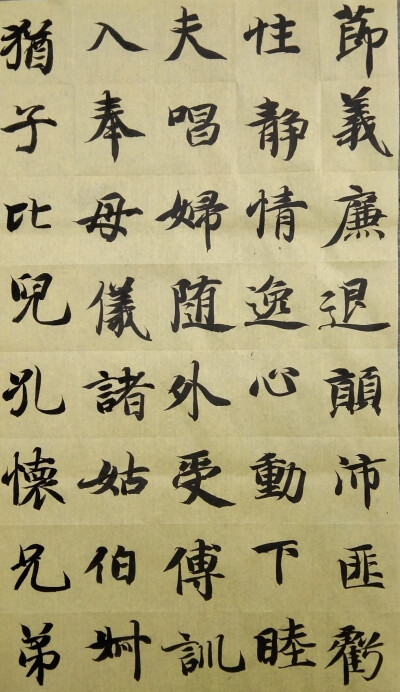 節義廉退顛沛匪虧
性静情逸心動下睦
夫唱婦随外受傅訓
入奉母儀諸姑伯叔
猶子比兒孔懷兄弟